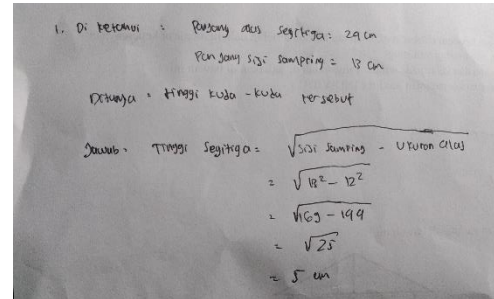 1. Di ketahui : Panjang alas segitiga = 24 cm
Panjang sisi samping = 13 cm
Ditanya = tinggi kuda-kuda tersebut
Jawab = Tinggi segitiga = √sisi samping - ukuran alas
= √13² - 12²
= √169 - 144
= √25
= 5 cm